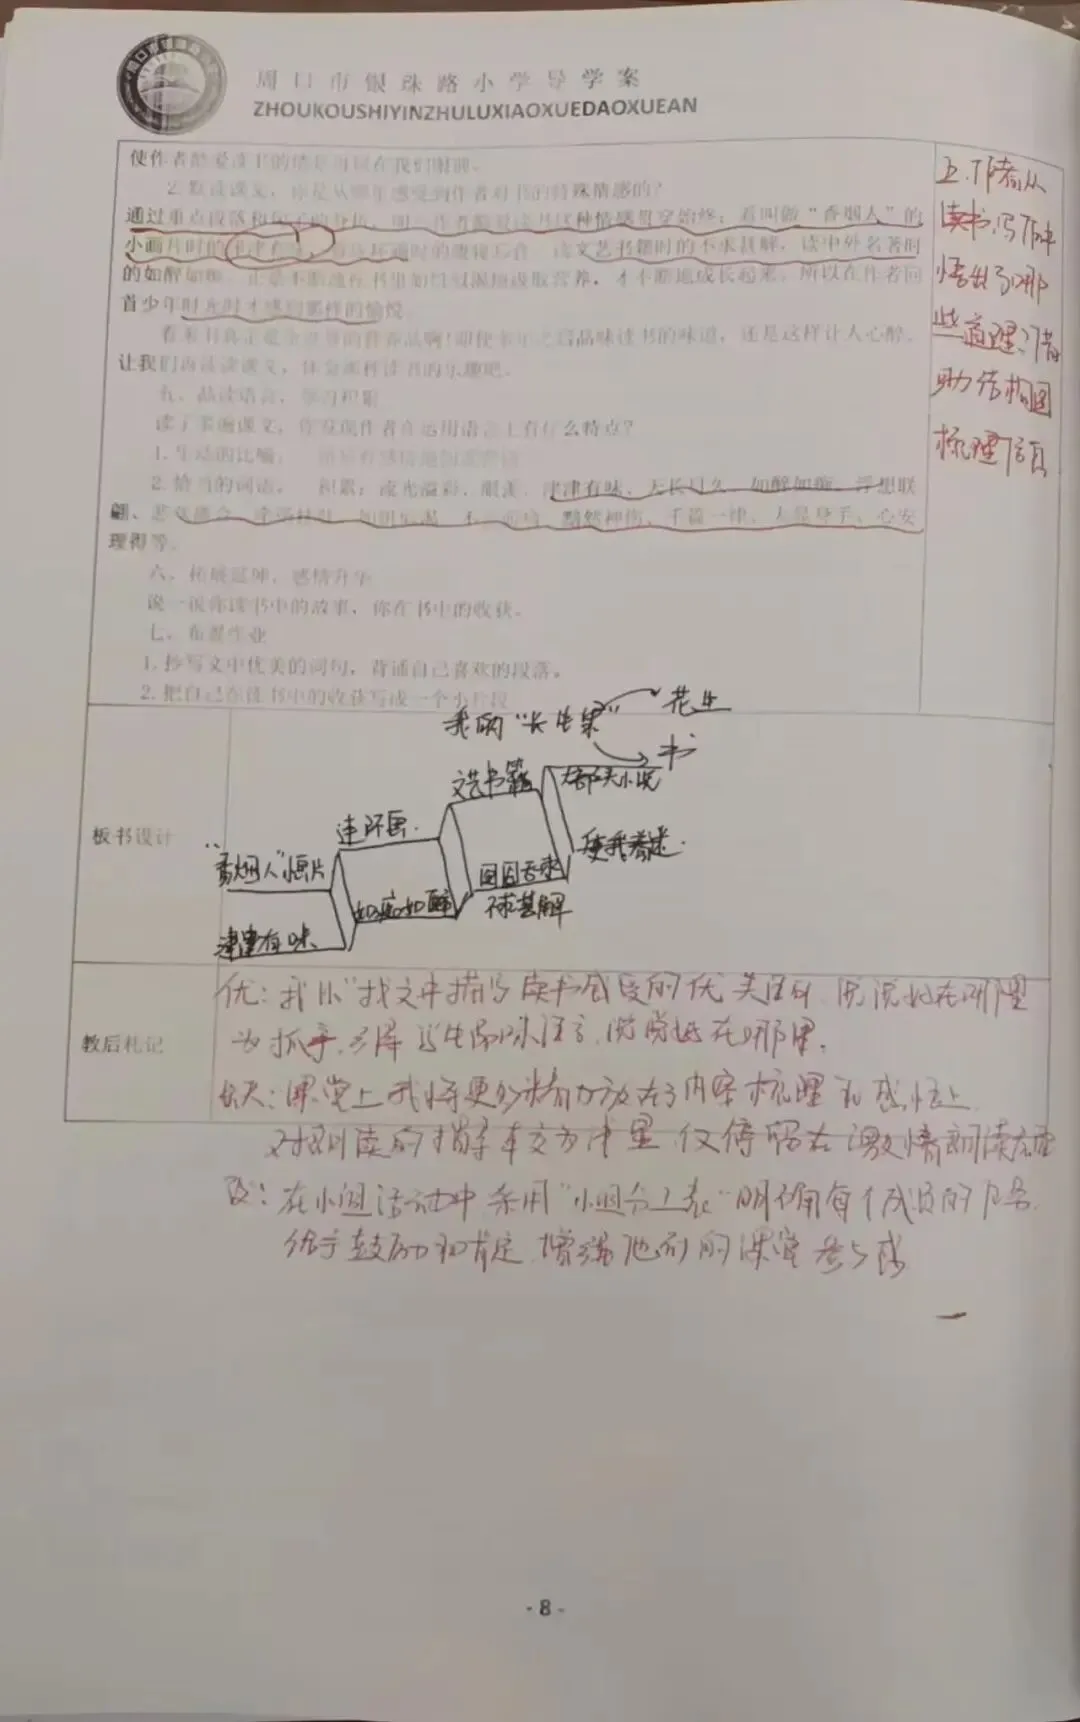 周口市银珠路小学导学案
ZHOUKOUSHIYINZHULUXIAOXUEDAOXUEAN
使作者酷爱读书的情景再现在我们眼前。
2.默读课文,你是从哪里感受到作者对书的特殊情感的?
通过重点段落和句子的分析,明 作者酷爱读书这种情感贯穿始终:看叫做“香烟人”的
小画片时的津津有味, 读文艺书籍时的不求甚解,读中外名著时
的如醉如痴。正是不断地在书里 汲取营养,才不断地成长起来。所以在作者回
首少年时光时才感到那样的愉悦。
品味读书的味道,还是这样让人心醉。
让我们再读读课文,体会那种读书的乐趣吧。
五、品读语言,学习积累
读了本篇课文,你发现作者在运用语言上有什么特点?
1.生动的比喻。
2.恰当的词语。 积累:流光溢彩、 津津有味、天长日久、如醉如痴、浮想联
翩、悲欢离合、牵强附会、如期 、 黯然神伤、千篇一律、大显身手、心安
理得等。
六、拓展延伸,感情升华
说一说你读书中的故事,你在书中的收获。
七、布置作业
1.抄写文中优美的词句,背诵自己喜欢的段落。
2.把自己在读书中的收获写成一个小片段
五.作者从
读书.写作中
悟出了哪
些道理?借
助结构图
梳理信息
板书设计
我的“长生果” 花生
书
文艺书籍 大部头小说
连环画 使我着迷.
“香烟人”画片 囫囵吞枣
如痴如醉 不求甚解
津津有味
教后札记
优:我以“找文中描写读书感受的优美语句,说说好在哪里
为抓手, 语言,说说好在哪里。
缺失:课堂上我将更多精力放在了内容梳理和感悟上
对朗读的指导 仅停留在激情朗读
改:在小组活动中采用“小组分工表”明确每个成员的任务.
给予鼓励和肯定,增强他们的课堂参与感
- 8 -